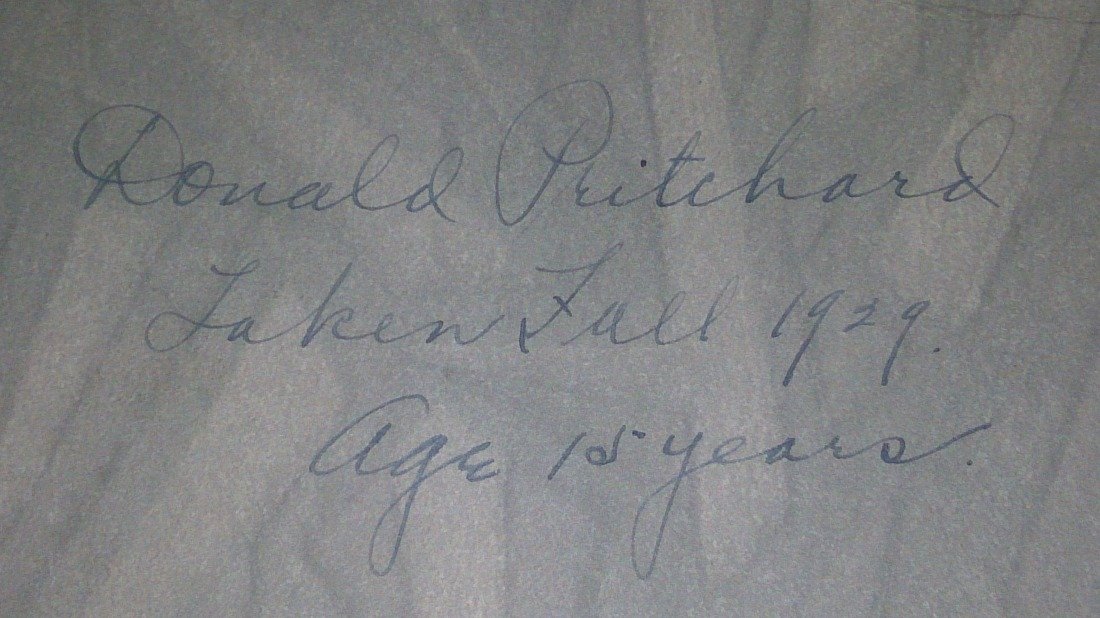 Donald Pritchard
Taken Fall 1929.
Age 15 years.